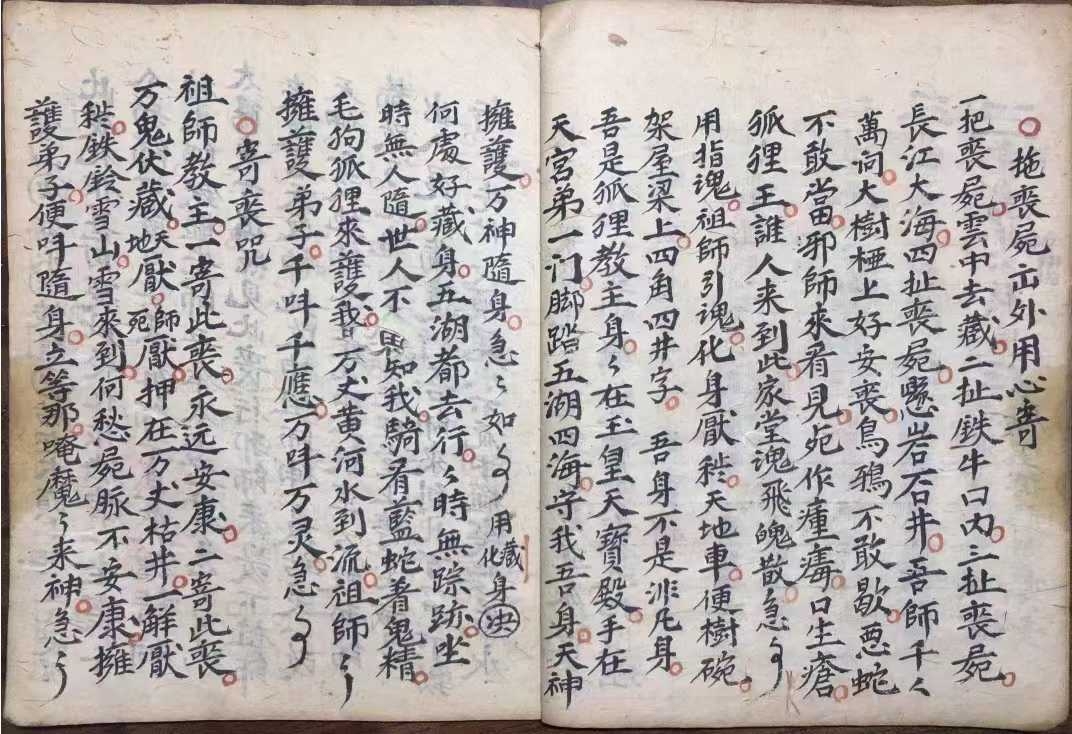 ○拖喪屍出外用心寄
一把喪屍雲中去藏○二扯鉄牛口内○三扯喪屍○
長江大海○四扯喪屍○懸岩石井○吾師千〻
萬问○大樹極上好安喪○鳥鴉不敢歇○惡蛇
不敢當○邪師來看見○作瘇毒口生瘡○
狐狸王○誰人来到此○家堂魂飛魄散○急〻
用指魂○祖師引魂○化身厭○天地車○便樹碗○
架屋梁上○四角四井字○吾身不是非凡身○
吾是狐狸教主身○〻在玉皇天寶殿○手在
天宮弟一门○脚踏五湖四海○守我吾身○天神
擁護○万神隨身○急〻如〻用藏化身決
何處好藏身○五湖都去行○〻時無踪跡○坐
時無人隨○世人不知我○騎着藍蛇著鬼精○
毛狗狐狸來護我○万丈黄河水到流○祖師〻〻
擁護弟子○千呌千應○万呌万灵○急〻
○寄喪咒
祖師教主○一寄此喪○永远安康○二寄此喪○
万鬼伏藏○天厭○地死○師厭○押在万丈枯井○一觧厭
○鉄鈴雪山○雪來到何愁屍脉不安康○擁
護弟子○便呌隨身○立等那○唵魔〻来神急〻